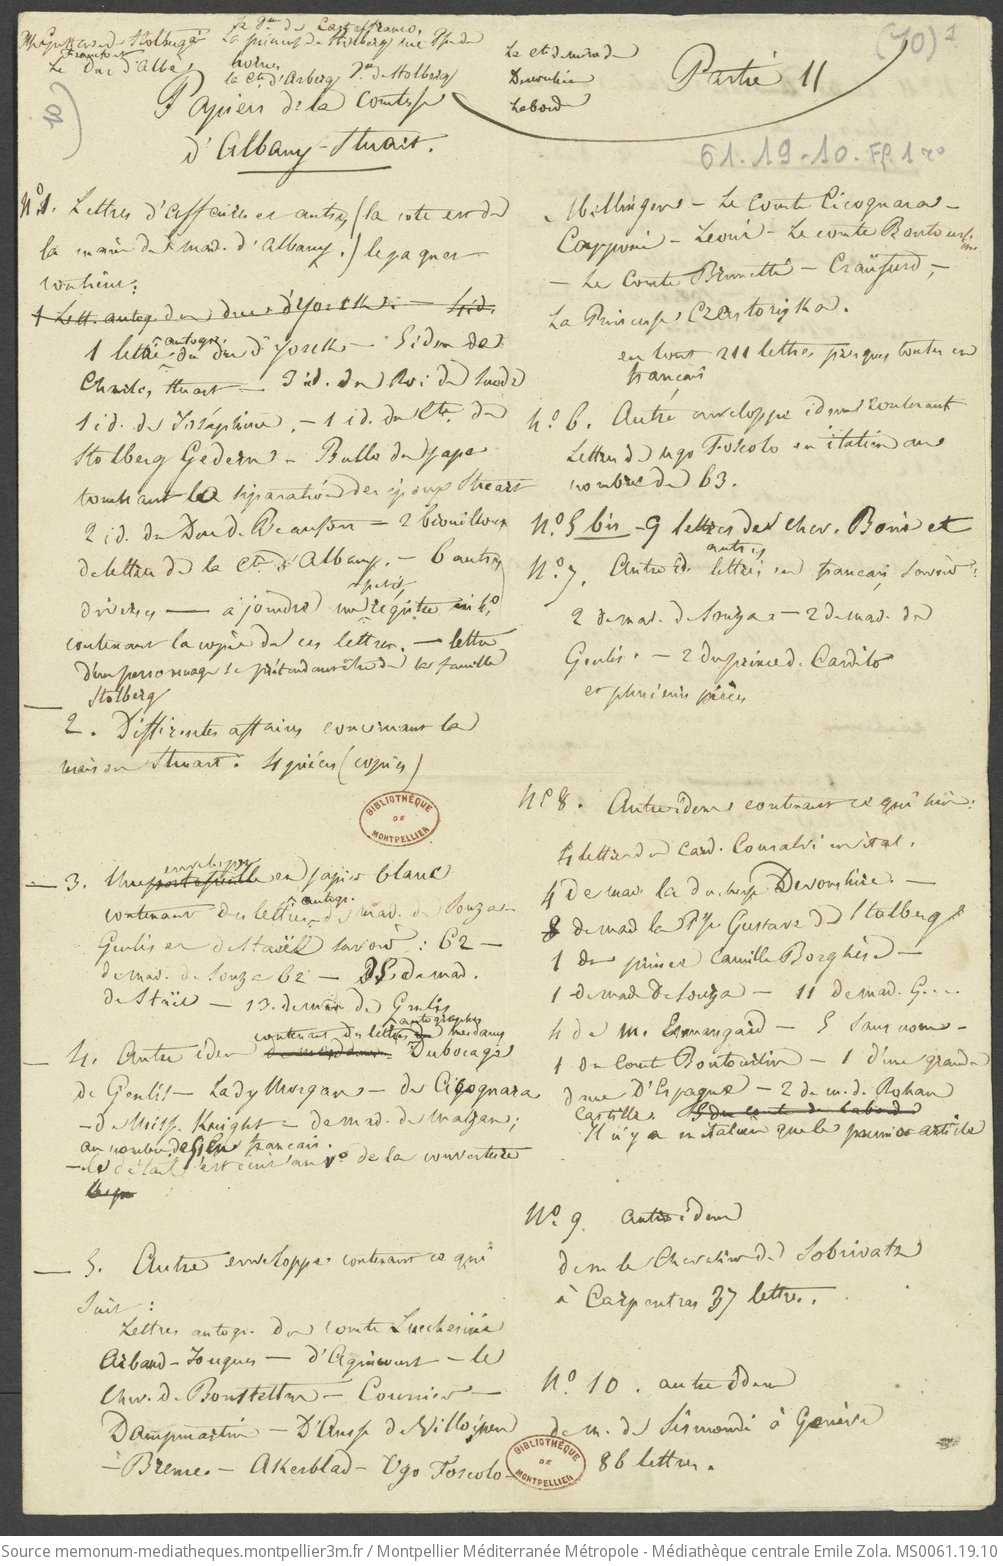 (70) 1
Partie 11
Papiers de la Comtesse
d'Albany-Stuart.
61.19-10. FF. 1 ro
No 1. Lettres d'affaires et autres (la cote est de
la main de mad. d'Albany.) le paquet
contient:
1 lettre autogr. du duc d'Yorck — 5 idem de
Charles Stuart — 3 id. du Roi de Suede
1 id. de Joséphine. — 1 id. du Cte. de
Stolberg Gedern — Bulle du pape
touchant la séparation des époux Stuart
2 id. du Duc de Beaufort — 2 brouillons
de lettres de la Ctesse d'Albany. — 6 autres
diverses — à joindre un petit registre in 4o
contenant la copie de ces lettres. — lettre
d'un personnage se prétendant être de la famille
Stolberg
2. Différentes affaires concernant la
maison Stuart. 4 pièces (copies)
BIBLIOTHÈQUE DE MONTPELLIER
3. Une enveloppe en papier blanc
contenant des lettres autogr. de mad. de Souza
Genlis et de Staël savoir : 62 —
de mad. de Souza 62 — 25 de mad.
de Staël — 13. de mad. de Genlis
4. Autre idem contenant des lettres autographes de mesdames Dubocage
de Genlis — Lady Morgan — de Cicognara
— de Miss. Knight — de mad. de
au nombre de en français.
— le détail est écrit au vo de la couverture
5. Autre enveloppe contenant ce qui
suit :
Lettres autogr. du comte Lucchesini
Arbaud-Jouques — d'Agincourt — le
Chev. de Bonstetten — Courier —
Dampmartin — D'Ansse de Villoison
— Breme. — Akerblad — Ugo Foscolo —
Millingen — Le Comte Cicognara —
Capponi — — Le comte Boutourlin
— Le Comte Brunetti — Craüfurd, —
La Princesse Czartoriska.
en tout 211 lettres presque toutes en
français
No. 6. Autre enveloppe idem contenant
Lettres de ugo Foscolo en italien au
nombre de 63.
No. 5 bis — 9 lettres du chev. Boris et
No. 7. Autre id. autres lettres en français, savoir :
2 de mad. de Souza — 2 de mad. de
Genlis. — 2 du prince d. Cardito
et plusieurs pièces
No 8. Autre idem contenant ce qui suit:
4 lettres du Card. Consalvi en ital.
4 de mad. la duchesse Devonshire. —
8 de mad la Psse Gustave de Stolberg
1 du prince Camille Borghèse —
1 de mad De Souza — 11 de mad. G...
4 de M. — 5 sans nom —
1 du Comte Boutourlin — 1 d'une grande
dame D'Espagne — 2 de m. d. Rohan
Il n'y a en italien que le premier article
No. 9 autre idem
de m le Chevalier de Sobiratz
à Carpentras 37 lettres.
No 10. autre idem
de m. de Sismondi à Genève
86 lettres.
BIBLIOTHÈQUE DE MONTPELLIER
Source memonum-mediatheques.montpellier3m.fr / Montpellier Méditerranée Métropole - Médiathèque centrale Emile Zola. MS0061.19.10